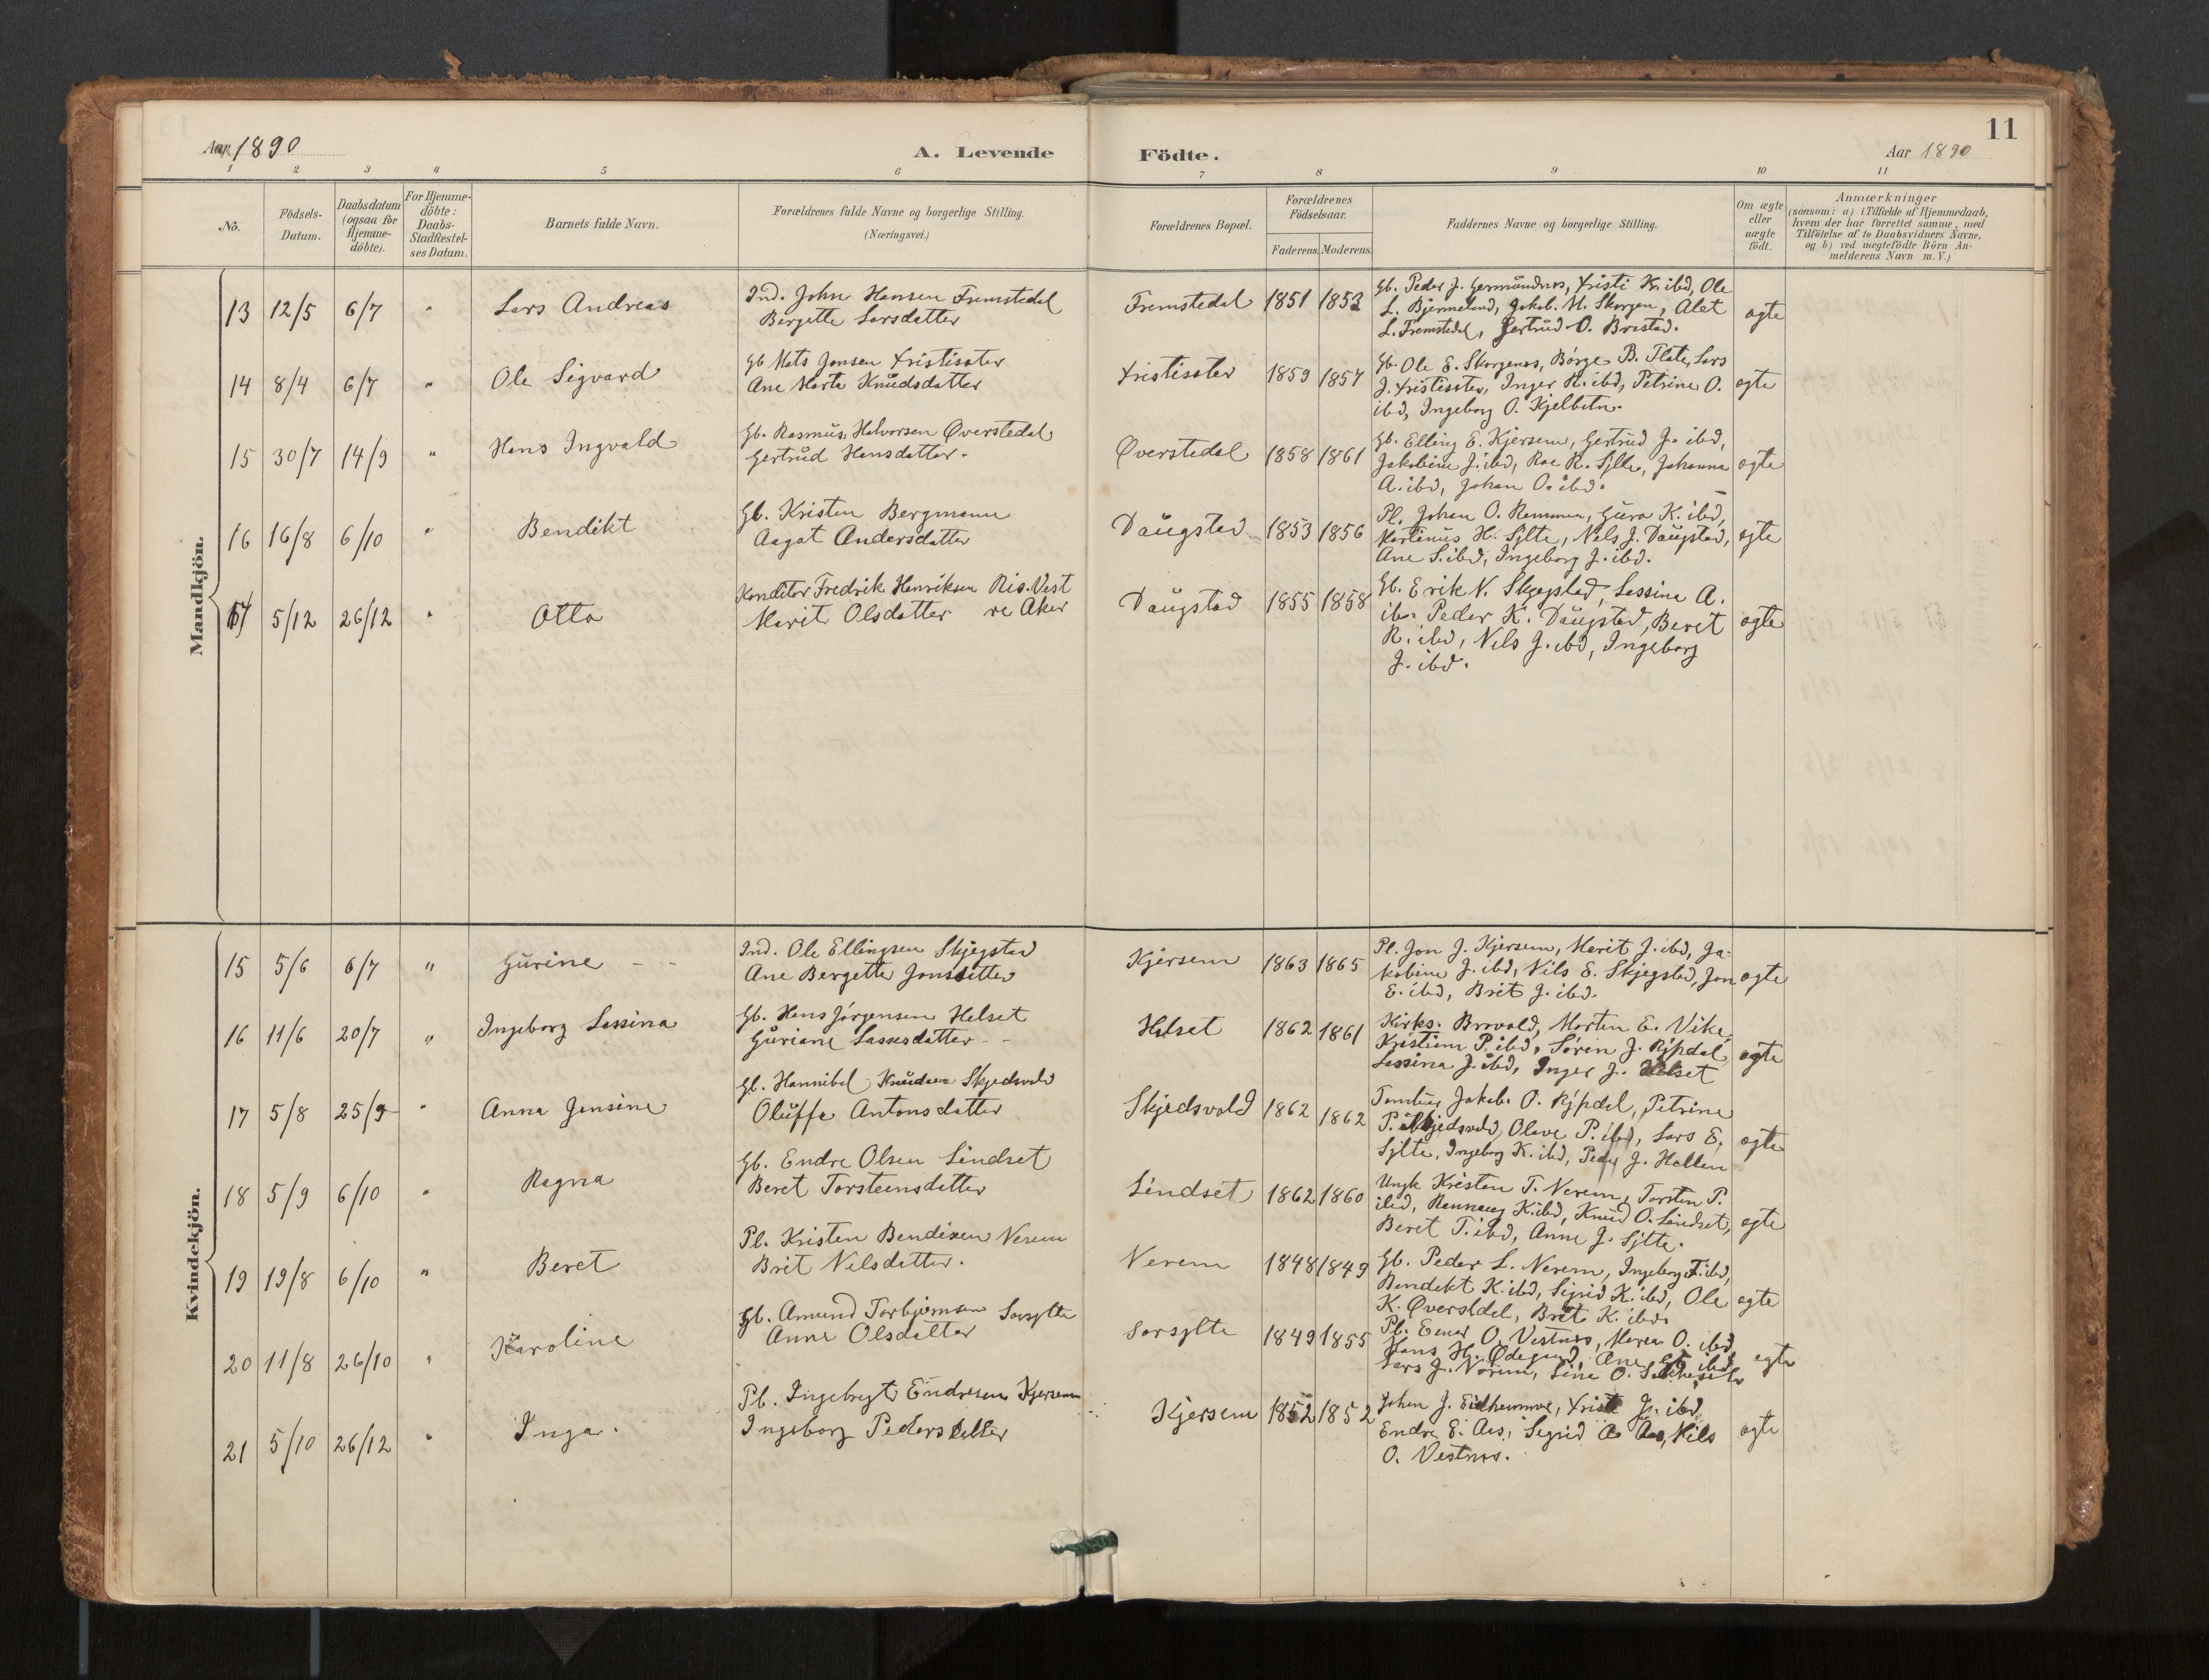 11
Aar 1890
A. Levende Födte.
Aar 1890
1 2 3 4 5 6 7 8 9 10 11
No.
Födsels-Datum.
Daabsdatum (ogsaa for Hjemme-döbte).
For Hjemme-döbte: Daabs-Stadfæstel-ses Datum.
Barnets fulde Navn.
Forældrenes fulde Navne og borgerlige Stilling.
(Næringsvei.)
Forældrenes Bopæl.
Forældrenes Födselsaar.
Faderens. Moderens.
Faddernes Navne og borgerlige Stilling.
Om ægte eller uægte födt.
Anmærkninger
(saasom: a) i Tilfælde af Hjemmedaab,
hvem der har forrettet samme, med
Tilföielse af to Daabsvidners Navne,
og b) ved uægtefödte Börn An-
melderens Navn m. V.)
Mandkjön.
13 12/5 6/7 " Lars Andreas
Ind. John Hansen Fremstedal
Bergette Larsdatter
Fremstedal 1851 1853
Gb. Peder J. Germundnes, Kristi K. ibd, Ole
L. Bjermeland, Jakob M. Skorgen, Alet
L. Fremstedal, Gertrud O. Brastad.
ægte
14 8/4 6/7 " Ole Sigvard
Gb Mats Jonsen Kristisæter
Ane Marta Knudsdatter
Kristisæter 1859 1857
Gb. Ole E. Skorgenes, Børge B. Flate, Lars
J. Kristisæter, Inger K. ibd, Petrine O.
ibd, Ingeborg O. Kjelbotn.
ægte
15 30/7 14/9 " Hans Ingvald
Gb. Rasmus Halvorsen Øverstedal
Gertrud Hansdatter.
Øverstedal 1858 1861
Gb. Elling E. Kjersem, Gertrud J. ibd,
Jakobine J. ibd, Roe R. Sylte, Johanna
A. ibd, Johan O. ibd.
ægte
16 16/8 6/10 " Bendikt
Gb. Kristen Bergmann
Aagot Andersdatter
Daugstad 1853 1856
Pl. Johan O. Remmen, Gura K. ibd,
Martinus H. Sylte, Nils J. Daugstad,
Ane S. ibd, Ingeborg J. ibd.
ægte
17 5/12 26/12 " Otto
Konditor Fredrik Henriksen Ris. Vest
Marit Olsdatter re Aker
Daugstad 1855 1858
Gb. Erik N. Skjegstad, Lassina A.
ib. Peder K. Daugstad, Beret
R. ibd, Nils J. ibd, Ingeborg
J. ibd.
ægte
Kvindekjön.
15 5/6 6/7 " Gurine
Ind. Ole Ellingsen Skjegstad
Ane Bergette Jonsdatter
Kjersem 1863 1865
Pl. Jon J. Kjersem, Marit J. ibd, Ja-
kobine J. ibd, Nils E. Skjegstad, Jon
E. ibd, Brit J. ibd.
ægte
16 11/6 20/7 " Ingeborg Lassina
Gb. Hans Jørgensen Helset
Guriane Lassesdatter
Helset 1862 1861
Kirks. Brovold, Morten E. Vike,
Kristine P. ibd, Søren J. Rypdal
Lassina J. ibd, Inger J. Helset
ægte
17 5/8 25/9 " Anna Jensine
Gb. Hannibal Knudsen Skjedsvold
Oluffa Antonsdatter
Skjedsvold 1862 1862
Jakob O. Rypdal, Petrine
P. Skjedsvold, Olave P. ibd, Lars E.
Sylte, Ingeborg K. ibd, Peder J. Hallen
ægte
18 5/9 6/10 " Ragna
Gb. Endre Olsen Lindset
Beret Torsteensdatter
Lindset 1862 1860
Ungk Kristen T. Nerem, Torsten P.
ibd, Rannaug K. ibd, Knud O. Lindset,
Beret T. ibd, Anne J. Sylte.
ægte
19 19/8 6/10 " Beret
Pl. Kristen Bendixen Nerem
Brit Nilsdatter.
Nerem 1848 1849
Gb. Peder L. Nerem, Ingeborg T. ibd,
Bendikt K. ibd, Sigrid K. ibd, Ole
K. Øverstdal, Brit K. ibd.
ægte
20 11/8 26/10 " Karoline
Gb. Amund Torbjørnsen Sorsylte
Anne Olsdatter
Sorsylte 1849 1855
Pl. Einar O. Vestnes, Maren O. ibd,
Hans H. Ødegaard, Ane ibd,
Lars J. Nerem, Line O.
ægte
21 5/10 26/12 " Inga.
Pl. Ingebrigt Endresen Kjersem
Ingeborg Pedersdatter
Kjersem 1852 1852
Johan J. Eidhammer, Kristi J. ibd,
Endre E. Aas, Sigrid A. Aas, Nils
O. Vestnes.
ægte